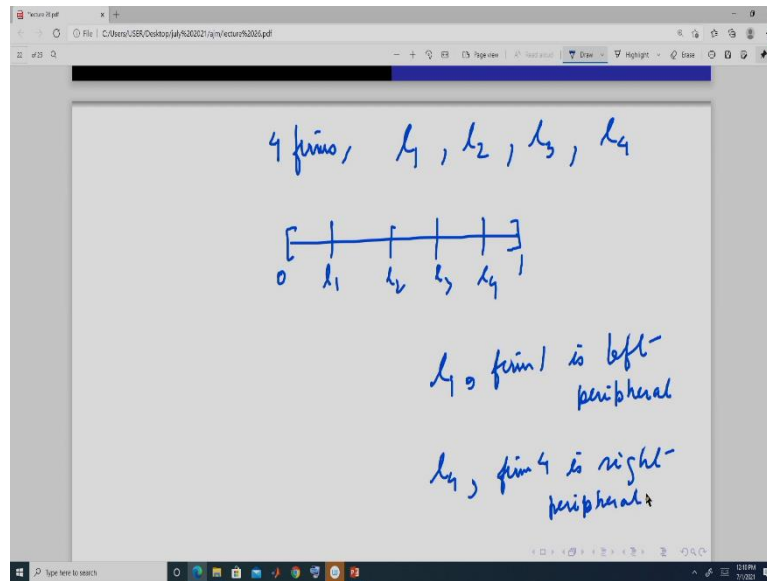 lecture 26.pdf
File | C:/Users/USER/Desktop/july%202021/ajm/lecture%2026.pdf
22 of 23 Page view Read aloud Draw Highlight Erase
4 firms, l1, l2, l3, l4
0 l1 l2 l3 l4 1
l1, firm 1 is left-
peripheral
l4, firm 4 is right-
peripheral
Type here to search
12:10 PM
7/1/2021